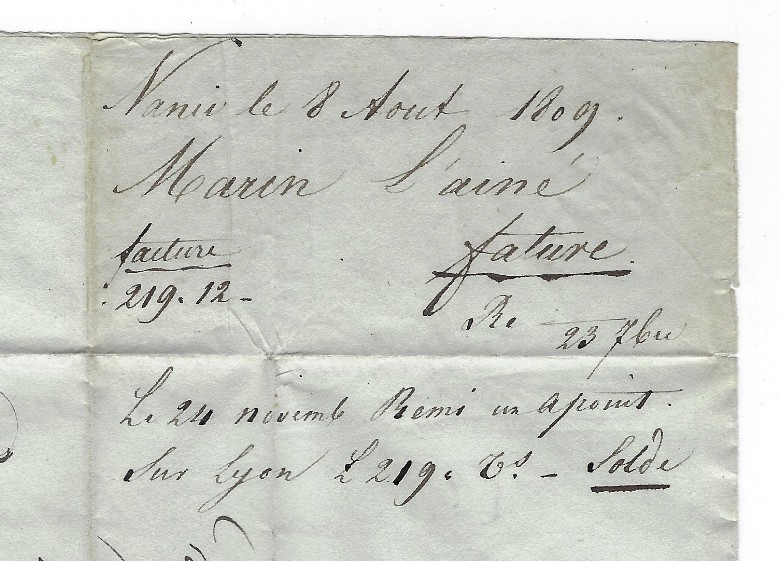 Nanci le 8 Aout 1809.
Marin L'ainé
facture
fature.
219. 12 -
Re 23 7bre
Le 24 novemb Remi un apoint.
Sur Lyon £ 219. Ts. - Solde